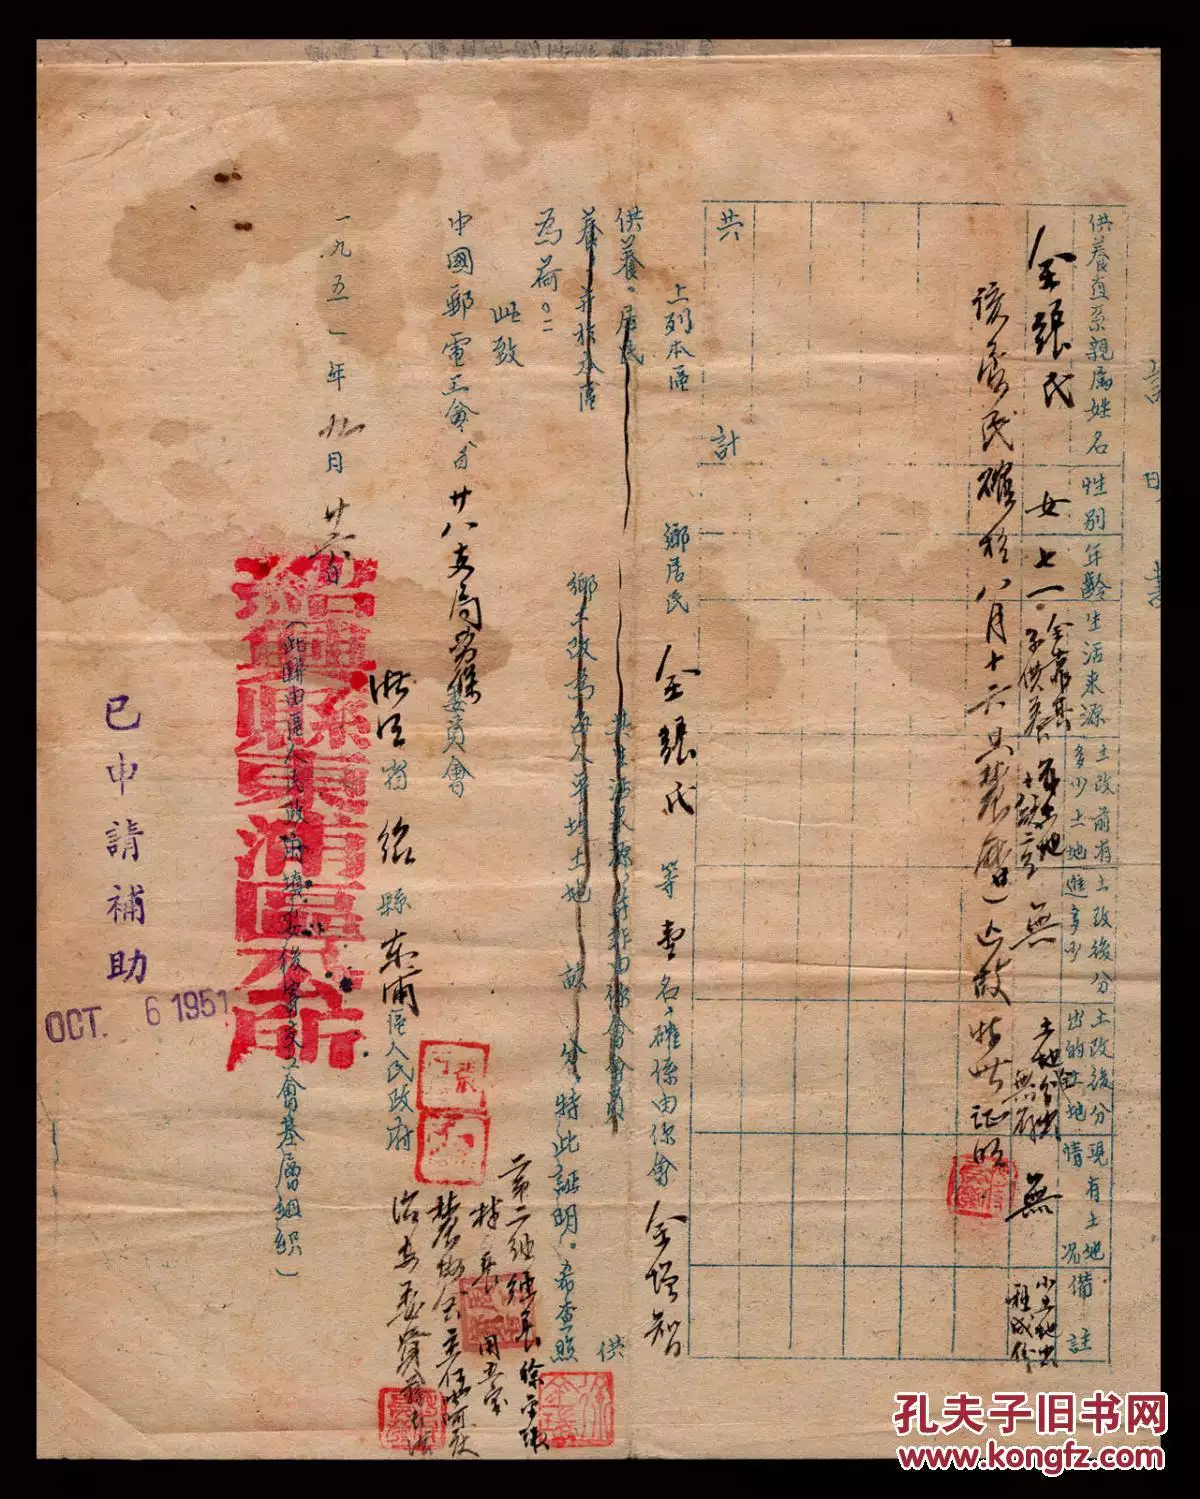 證明書
供養直系親屬姓名 性別 年齡 生活來源 土改前有多少土地 土改後分進多少 土改後分出的土地 現有土地情况 備註
金張氏 女 七一 全靠其子供养 無 無 小土地出租成份
該居民確於八月十六日(農曆)亡故 特此证明
共計
上列本區 鄉居民 金張氏 等 壹 名,確係由你會 金增智 供
供養。居民 其生活來源,
養,并於本區 鄉土改為每人平均土地 畝 分,特此証明。希查照
為荷。
此致
中國郵電工會 廿八支局劳保委員會
浙江省 紹 縣 东浦 區人民政府
第二组组長徐
村長
農協會主任
治安委員
一九五一年九月廿六日
紹興縣東浦區公所
(此聯由區人民政府填妥後寄交工會基層組織)
已申請補助
OCT. 6 1951
孔夫子旧书网
www.kongfz.com